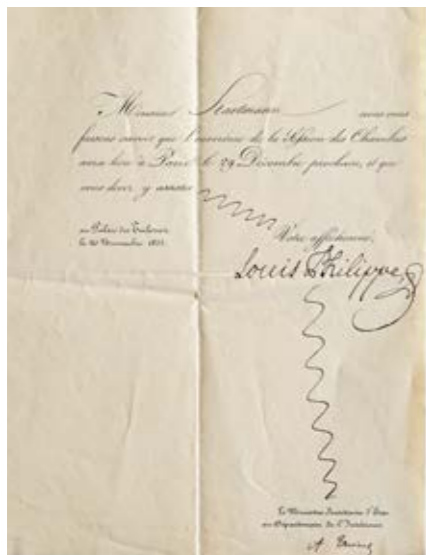 Monsieur Hartmann nous vous
faisons savoir que l'ouverture de la Session des Chambres
aura lieu à Paris le 29 Décembre prochain, et que
vous devez y assister
au Palais des Tuileries
le 20 Novembre
Votre affectionné,
Louis Philippe
Le Ministre Secrétaire d'Etat
au Département de l'Intérieur
A.